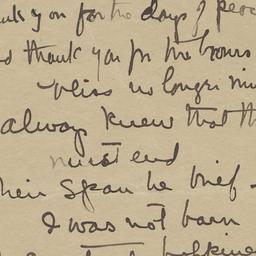 you for the days of peac
thank you for the hours
bliss no longer min
always knew that th
must end
heir span be brief -
I was not born